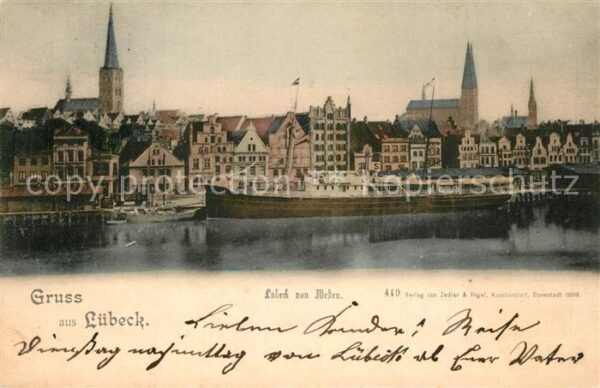 copyright
copyright
Gruss
aus Lübeck.
Lübeck von Westen.
449 Verlag von Zedler & Vogel, Kunstanstalt, Darmstadt 1899.
Lieben Kinder! Reise
Dienstag nachmittag von Lübeck ab Euer Vater